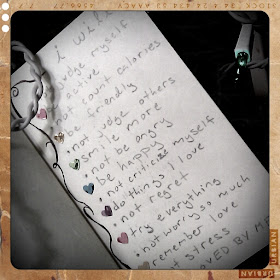 I will
judge myself
active
not count calories
be friendly
• not judge others
• smile more
• not be angry
• be happy
• not criticize myself
• do things I love
• not regret
• try everything
• not worry so much
• remember love
stress
LOVED BY